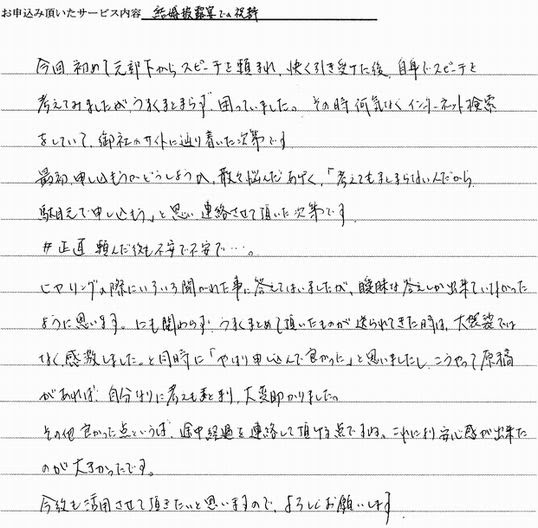 お申込み頂いたサービス内容 結婚披露宴での祝辞
今回初めて元部下からスピーチを頼まれ、快く引き受けた後、自身でスピーチを
考えてみましたが、うまくまとまらず、困っていました。その時何気なくインターネット検索
をしていて、御社のサイトに辿り着いた次第です
最初、申し込もうかどうしようか、散々悩んだあげく、「考えてもまとまらないんだから、
駄目元で申し込もう」と思い連絡させて頂いた次第です。
#正直 頼んだ後も不安で不安で・・・。
ヒヤリングの際にいろいろ聞かれた事に答えてはいましたが、曖昧な答えしか出来ていなかった
ように思います。にも関わらず、うまくまとめて頂いたものが送られてきた時は、大袈裟では
なく感激しました。と同時に「やはり申し込んで良かった」と思いましたし、こうやって原稿
があれば、自分なりに考えもまとまり、大変助かりました。
その他良かった点といえば、途中経過を連絡して頂ける点ですね。これにより安心感が出来た
のが大きかったです。
今後も活用させて頂きたいと思いますので、よろしくお願いします